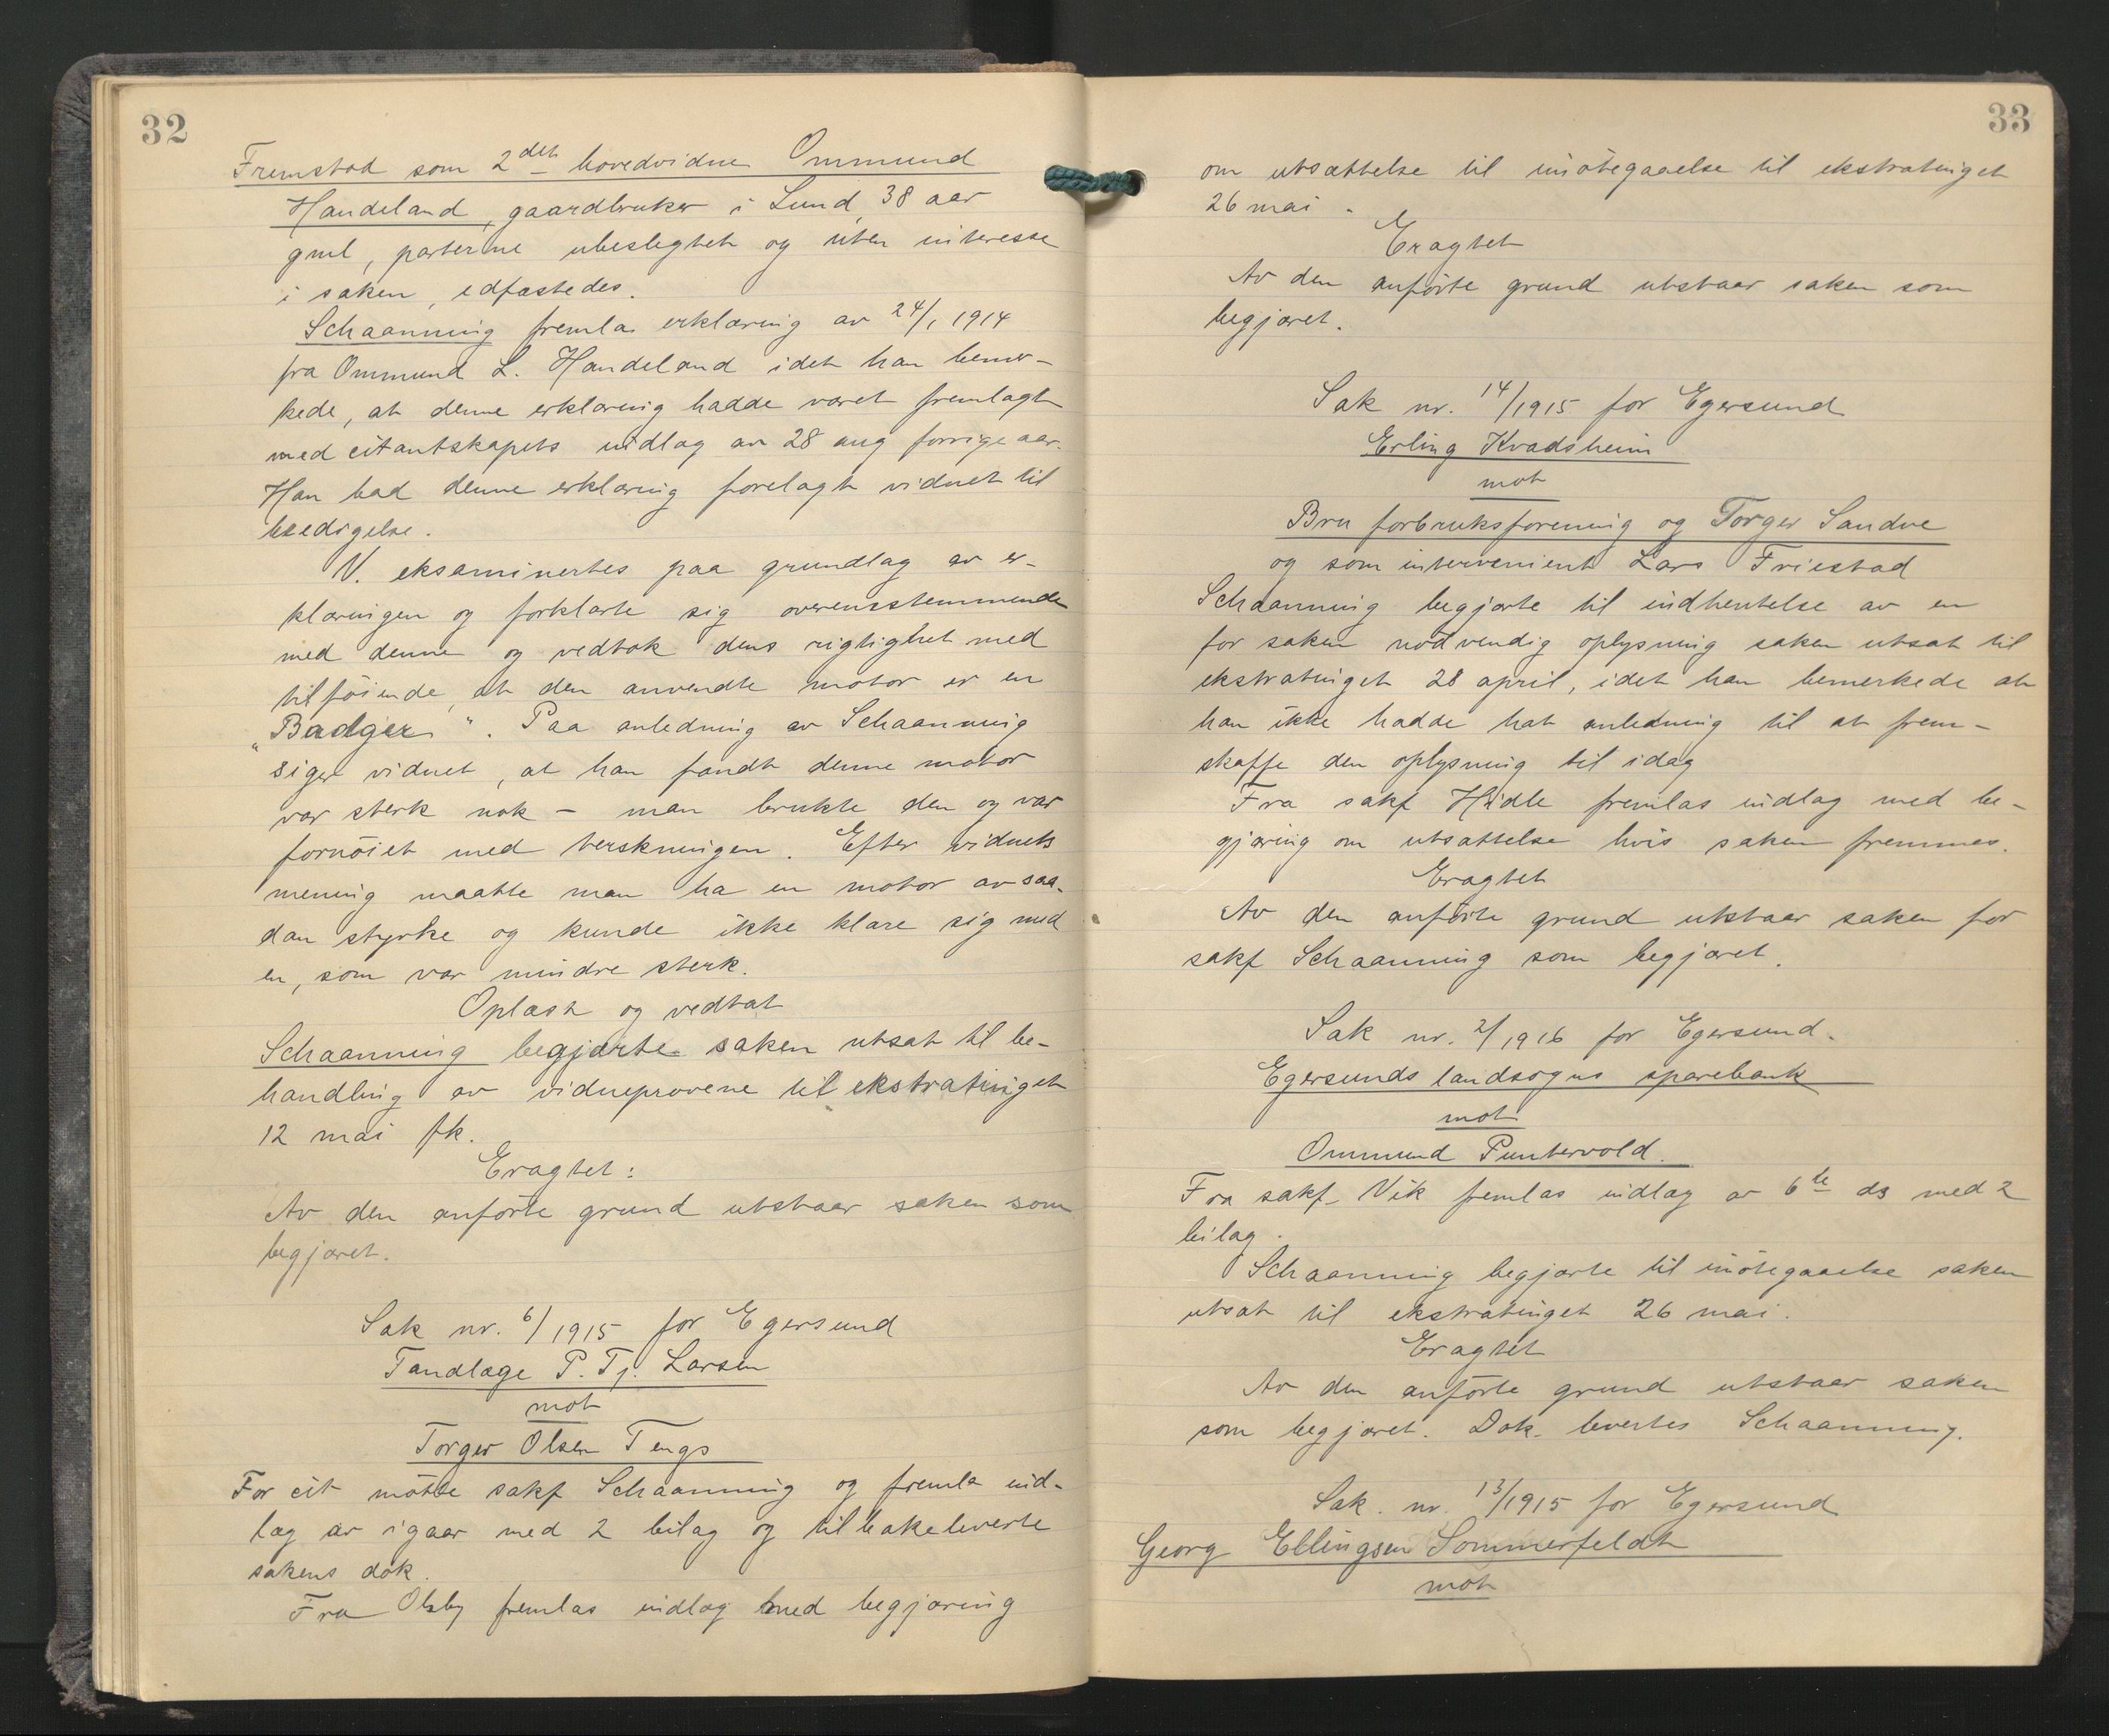 32
Fremstod som 2det hovedvidne Ommund
Handeland, gaardbruker i Lund, 38 aar
gml, parterne ubeslegtet og uten interesse
i saken, edfæstedes.
Schaanning fremla erklæring av 24/1 1914
fra Ommund L. Handeland idet han bemer-
kede, at denne erklæring hadde været fremlagt
med citantskapets indlæg av 28 aug forrige aar.
Han bad denne erklæring forelagt vidnet til
beedigelse.
V. eksaminertes paa grundlag av er-
klæringen og forklarte sig overensstemmende
med denne og vedtok dens rigtighet med
tilföiende, at den anvendte motor er en
"Badger". Paa anledning av Schaanning
siger vidnet, at han fandt denne motor
var sterk nok - man brukte den og var
fornöiet med terskningen. Efter vidnets
mening maatte man ha en motor av saa-
dan styrke og kunde ikke klare sig med
en, som var mindre sterk.
Oplæst og vedtat
Schaanning begjærte saken utsat til be-
handling av vidneprovene til ekstratinget
12 mai fk.
Eragtet:
Av den anförte grund utstaar saken som
begjæret.
Sak nr. 6/1915 for Egersund
Tandlæge P. Tj. Larsen
mot
Torger Olsen Tengs
For cit mötte sakf Schaanning og fremla ind-
læg av igaar med 2 bilag og tilbakeleverte
sakens dok.
Fra Olsby fremlaes indlæg med begjæring
33
om utsættelse til imötegaaelse til ekstratinget
26 mai.
Eragtet
Av den anförte grund utstaar saken som
begjæret.
Sak nr. 14/1915 for Egersund
Erling Kvadsheim
mot
Bru forbruksforening og Torger Sandve
og som intervenient Lars Friestad
Schaanning begjærte til indhentelse av en
for saken nödvendig oplysning saken utsat til
ekstratinget 28 april, idet han bemerkede at
han ikke hadde hat anledning til at frem-
skaffe den oplysning til idag
Fra sakf Hidle fremlaes indlæg med be-
gjæring om utsættelse hvis saken fremmes.
Eragtet
Av den anförte grund utstaar saken for
sakf Schaanning som begjæret.
Sak nr. 2/1916 for Egersund.
Egersunds landsogns sparebank
mot
Ommund Puntervold.
Fra sakf Vik fremlaes indlæg av 6te ds med 2
bilag.
Schaanning begjærte til imötegaaelse saken
utsat til ekstratinget 26 mai.
Eragtet
Av den anförte grund utstaar saken
som begjæret. Dok. levertes Schaanning.
Sak. nr. 13/1915 for Egersund
Georg Ellingsen Sommerfeldt
mot